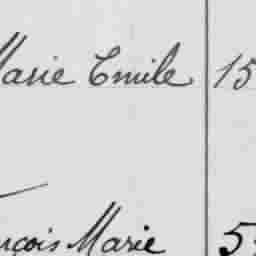 Marie Emile 15
nçois Marie 5